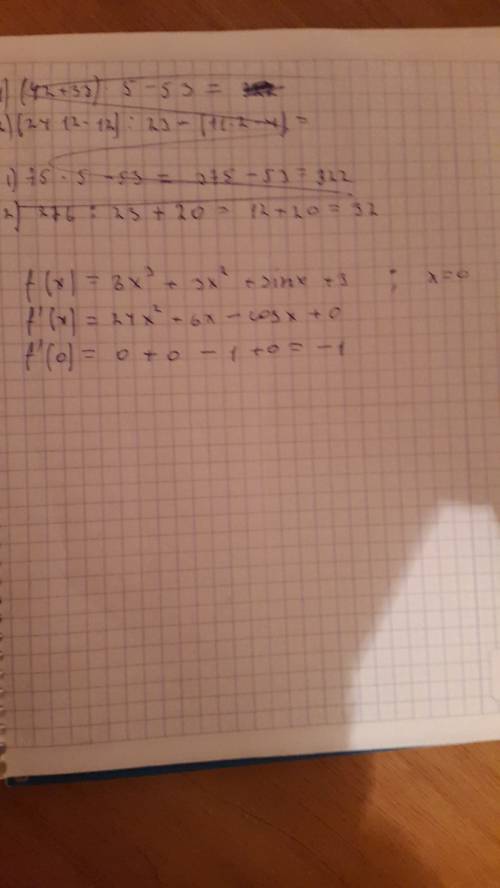 1) (42+33) 5 - 53 =
2) (24 · 12 - 12) : 23 - (12 · 2 - 4) =
1) 75 · 5 - 53 = 375 - 53 = 322
2) 276 : 23 + 20 = 12 + 20 = 32
f(x) = 8x³ + 3x² + sinx + 3 ; x=0
f'(x) = 24x² + 6x - cosx + 0
f'(0) = 0 + 0 - 1 + 0 = -1